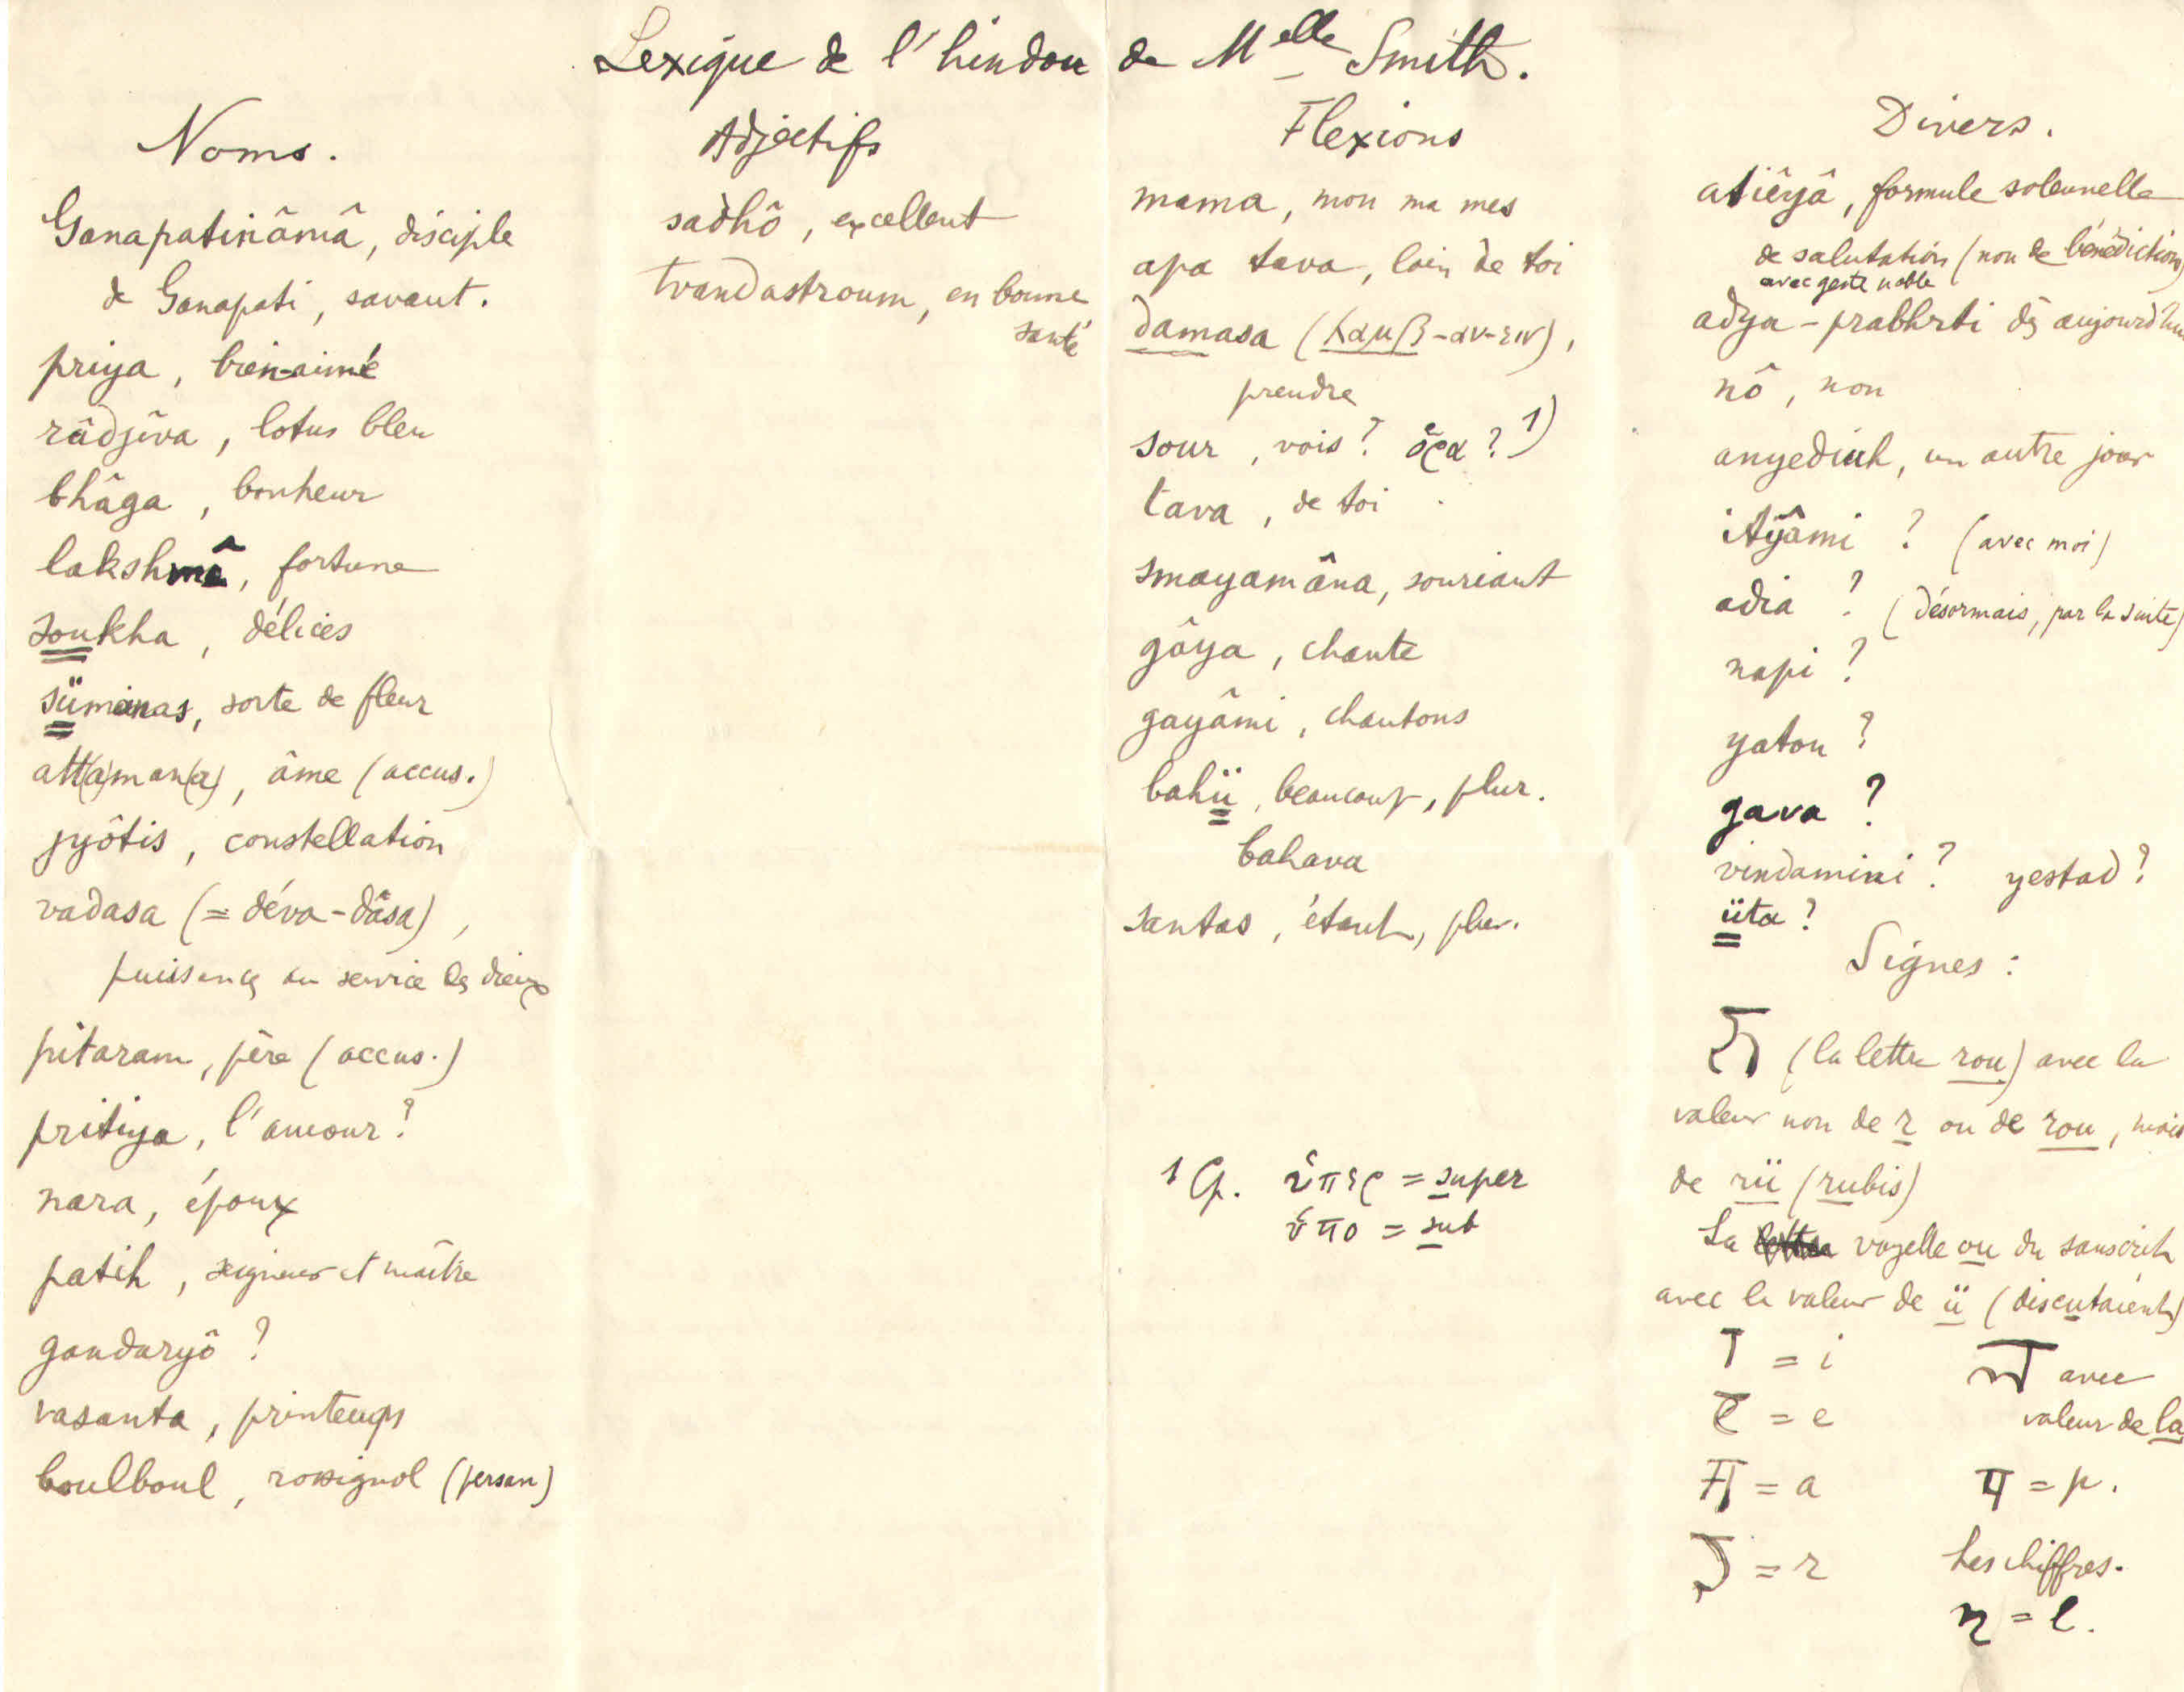 Lexique de l'hindou de Melle Smith.
Noms.
Ganapatinâmâ, disciple
de Ganapati, savant.
priya, bien-aimé
râdjîva, lotus bleu
bhâga, bonheur
lakshmâ, fortune
soukha, délices
sümanas, sorte de fleur
att(a)man(a), âme (accus.)
jyôtis, constellation
vadasa (= déva-dâsa),
puissances au service des dieux
pitaram, père (accus.)
pritiya, l'amour?
nara, époux
patih, seigneur et maître
gandaryô ?
vasanta, printemps
boulboul, rossignol (persan)
Adjectifs
sadhô, excellent
tvandastroum, en bonne
santé
Flexions
mama, mon ma mes
apa tava, loin de toi
damasa (λαμβ-αν-ειν),
prendre
sour, vois? ὅρα? 1)
tava, de toi
smayamâna, souriant
gâya, chante
gayâmi, chantons
bahü, beaucoup, plur.
bahava
santas, étant, plur.
1 Cp. ὑπερ = super
ὑπο = sub
Divers.
atiêyâ, formule solennelle
de salutation (non de bénédiction)
avec geste noble
adya-prabhrti dès aujourd'hui
nô, non
anyediuh, un autre jour
itÿâmi ? (avec moi)
adia ? (désormais, par la suite)
napi ?
yatou ?
gava ?
vindamini ? yestad ?
üta ?
Signes :
(la lettre rou) avec la
valeur non de r ou de rou, mais
de rü (rubis)
La voyelle ou du sanscrit
avec la valeur de ü (discutaient)
= i
= e
= a
= r
avec
valeur de la
= p.
Les chiffres.
= l.